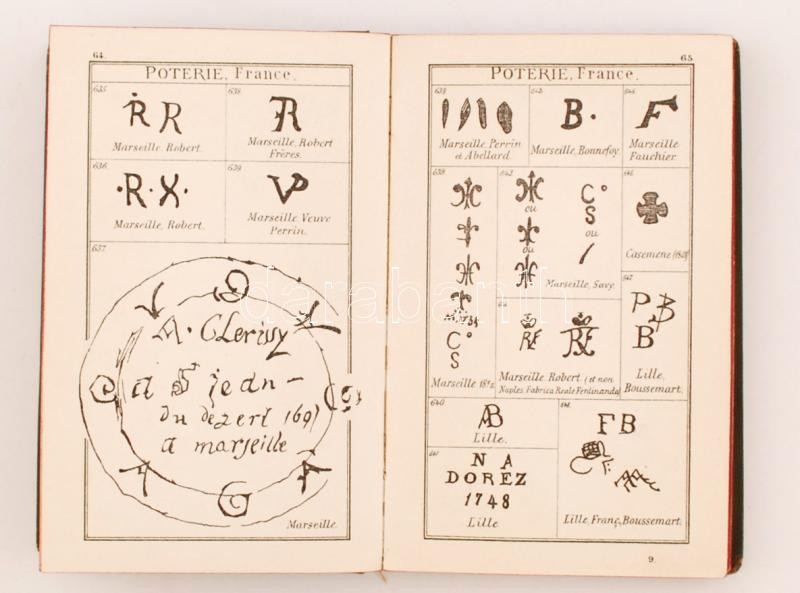 64.
POTERIE, France.
635
R R
Marseille, Robert.
638
R
Marseille, Robert
Frères.
636
·R·X·
Marseille, Robert.
639
VP
Marseille, Veuve
Perrin.
637.
A. CLerissy
a St jean-
du dezert 1697
a marseille
Marseille.
65.
POTERIE, France.
Marseille, Perrin
et Abellard.
B.
Marseille, Bonnefoy.
F
Marseille
Fauchier.
C
S
Marseille 18e s.
ou
ou
C
S
ou
Marseille, Savy.
Marseille Robert (et non
Naples Fabrica Reale Ferdinanda)
Casemene
PB
B
Lille,
Boussemart.
640
AB
Lille.
N A
DOREZ
1748
Lille
FB
Lille, Franç. Boussemart.
9.
darabanth